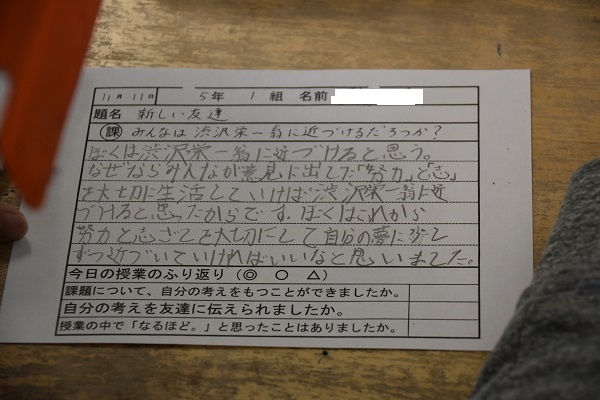 11月11日 5年 1組 名前
題名 新しい友達
課 みんなは渋沢栄一翁に近づけるだろうか?
ぼくは渋沢栄一翁に近づけると思う。
なぜならみんなが意見に出してた「努力」と「志」
を大切に生活していけば渋沢栄一翁に近
づけると思ったからです。ぼくはこれから
努力と志ざしを大切にして自分の夢に少し
ずつ近づいていければいいなと思いました。
今日の授業のふり返り(◎ ○ △)
課題について、自分の考えをもつことができましたか。
自分の考えを友達に伝えられましたか。
授業の中で「なるほど。」と思ったことはありましたか。